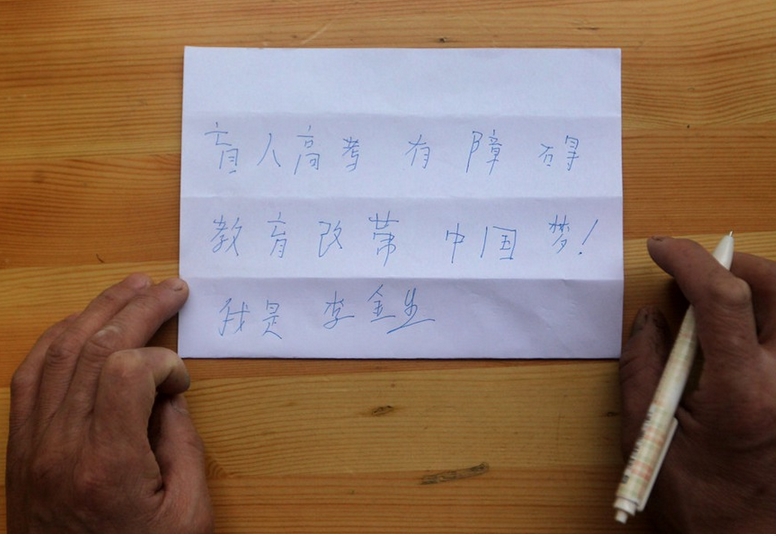 盲人高考 有 障 碍
教育改革 中国 梦!
我是 李金生